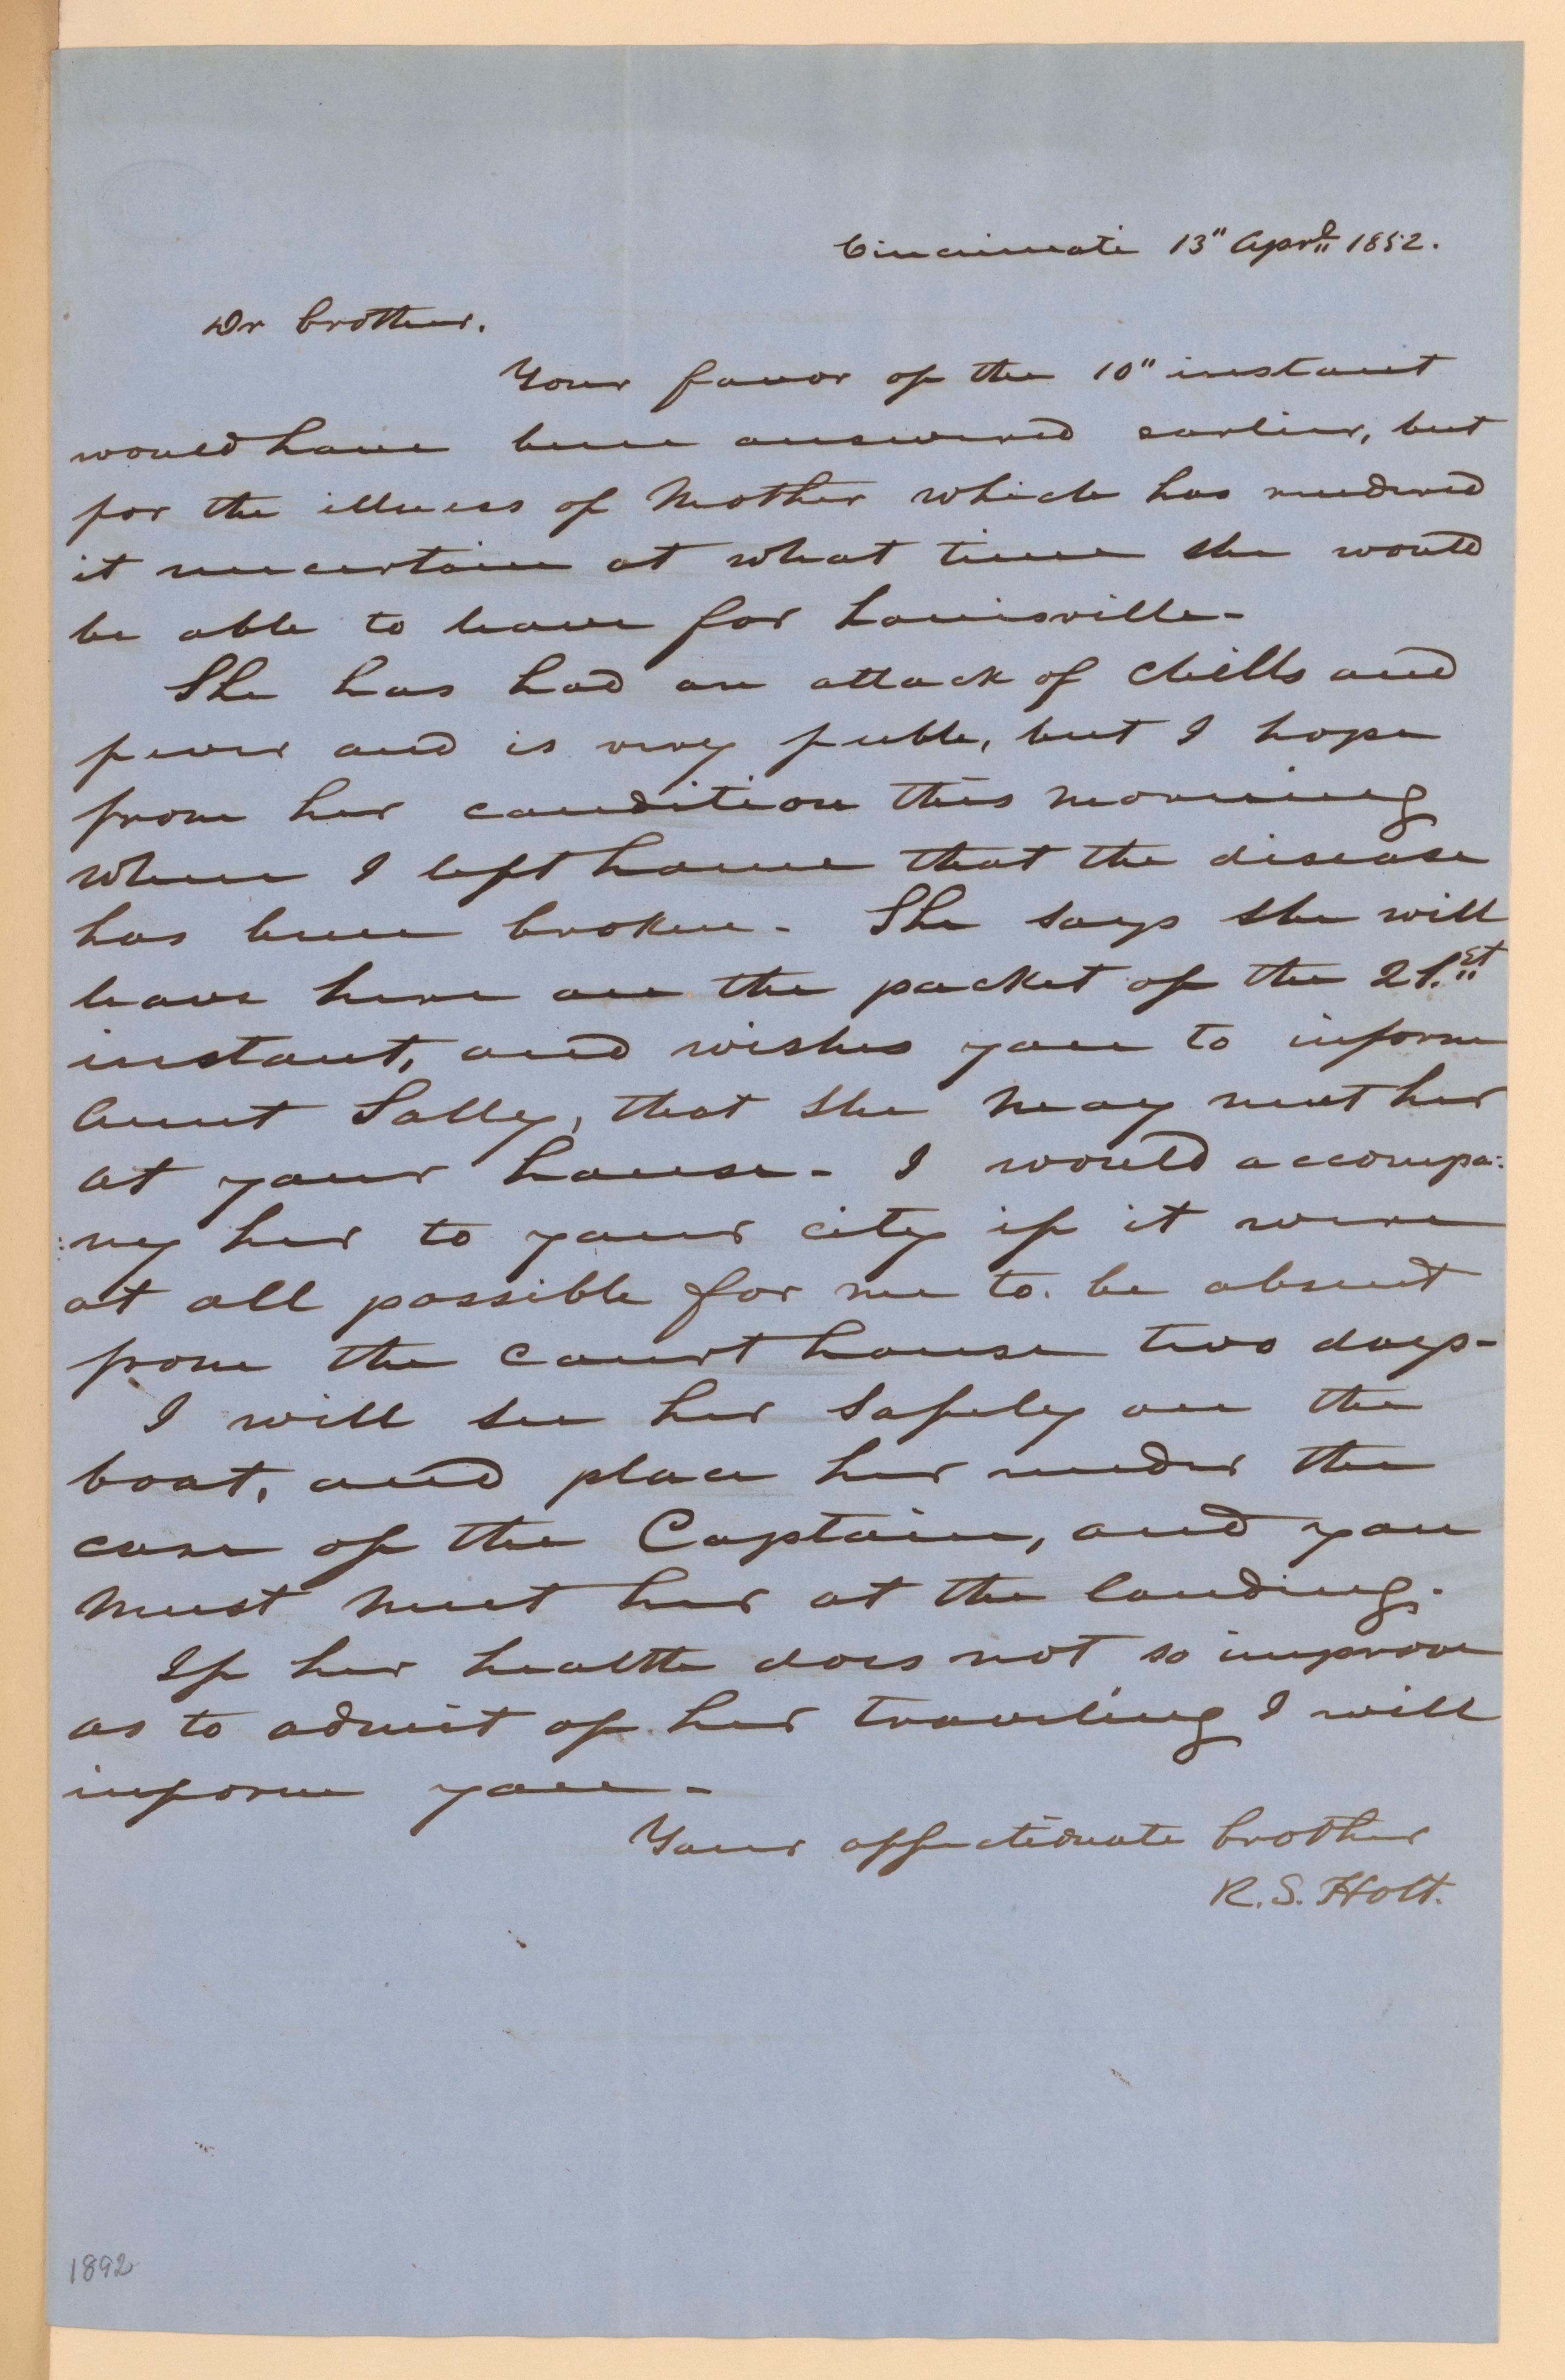 Cincinnati 13" Aprl 1852.
Dr brother.
Your favor of the 10" instant
would have been answered earlier, but
for the illness of Mother which has rendered
it uncertain at what time she would
be able to leave for Louisville-
She has had an attack of chills and
fever and is very feeble, but I hope
from her condition this morning
when I left home that the disease
has been broken- She says she will
leave here on the packet of the 21.st
instant, and wishes you to inform
Aunt Sally, that she may meet her
at your house- I would accompa:
:ny her to your city if it were
at all possible for me to be absent
from the court house two days-
I will see her safely on the
boat, and place her under the
care of the Captain, and you
must meet her at the landing.
If her health does not so improve
as to admit of her traveling I will
inform you-
Your affectionate brother
R.S. Holt.
1892